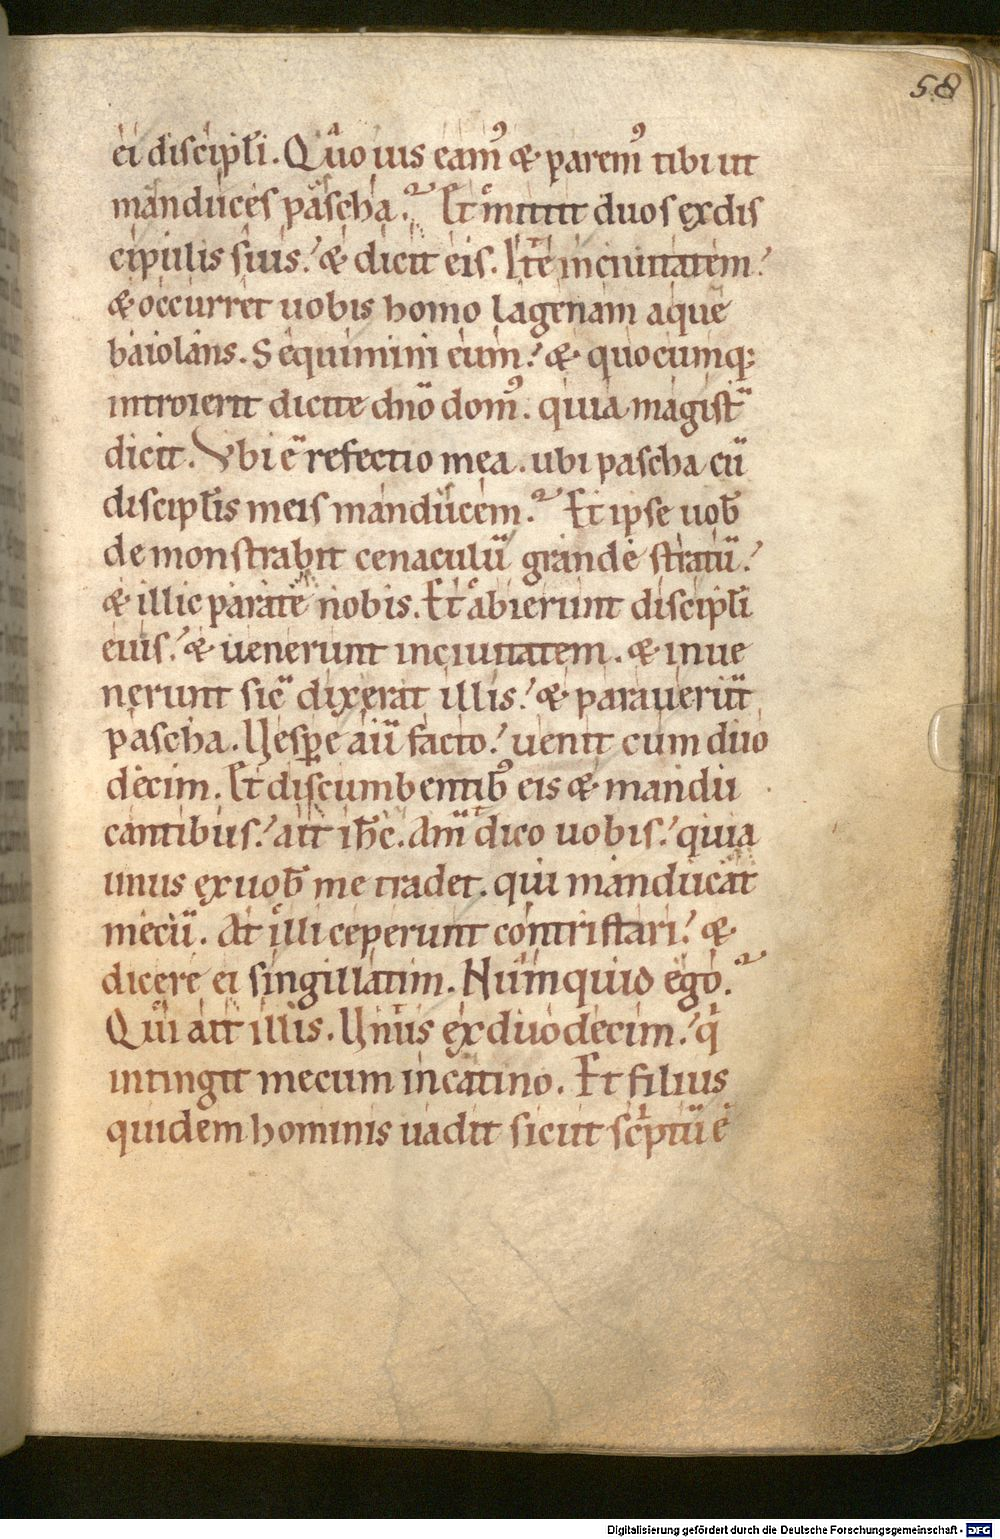 58
ei discipl̄i. Quo uis eam᷒ & parem᷒ tibi ut
manduces pascha? Et mittit duos ex dis
cipulis suis. & dicit eis. Ite in ciuitatem.
& occurret uobis homo lagenam aque
baiolans. Sequimini eum. & quocumq;
introierit dicite dn̄o dom᷒. quia magist̄
dicit. Vbi ē refectio mea. ubi pascha cū
discipl̄is meis manducem? Et ipse uob̄
demonstrabit cenaculū grande stratū.
& illic parate nobis. Et abierunt discipl̄i
eius. & uenerunt in ciuitatem. & inue
nerunt sic̄ dixerat illis. & parauerūt
pascha. Vesꝑe aū facto. uenit cum duo
decim. Et discumbentib᷒ eis & mandu
cantibus. ait ih̄c. Am̄ dico uobis. quia
unus ex uob̄ me tradet. qui manducat
mecū. At illi ceperunt contristari. &
dicere ei singillatim. Numquid ego?
Qui ait illis. Vnus ex duodecim. qͥ
intingit mecum in catino. Et filius
quidem hominis uadit sicut scͥptū ē
Digitalisierung gefördert durch die Deutsche Forschungsgemeinschaft - DFG